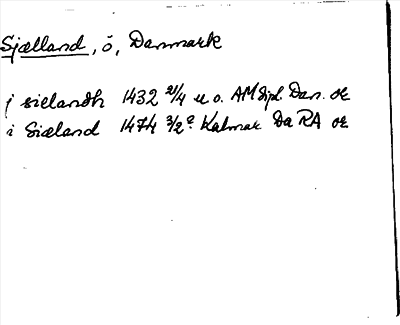 Sjælland, ö, Danmark
j sielandh 1432 21/4 u o. AM Dipl. Dan. or
i Siæland 1474 3/2 Kalmar Da RA or